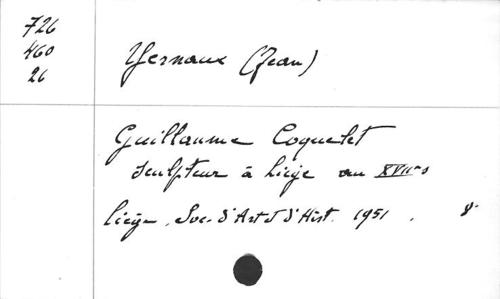 726
460
26
Yernaux (Jean)
Guillaume Coquelet
sculpteur à Liège au XVIIe s
Liège, Soc. d'Art et d'Hist. 1951. 8°